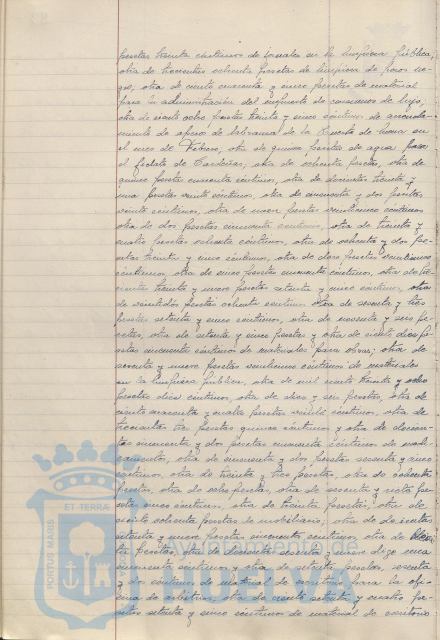 pesetas treinta céntimos de jornales en la limpieza pública,
otra de trescientas ochenta pesetas de limpieza de pozos ne-
gros, otra de ciento cuarenta y cinco pesetas de material
para la administración del impuesto de consumos de lujo,
otra de ciento ocho pesetas treinta y cinco céntimos de arrenda-
miento de apero de labranza de la
en el mes de Febrero, otra de quince pesetas de agua para
el fielato de otra de ochenta pesetas, otra de
quince pesetas cuarenta céntimos, otra de doscientas treinta y
una pesetas veinte céntimos, otra de cincuenta y dos pesetas
veinte céntimos, otra de nueve pesetas veinticinco céntimos
otra de dos pesetas cincuenta céntimos, otra de treinta y
cuatro pesetas ochenta céntimos, otra de ochenta y dos pe-
setas treinta y cinco céntimos, otra de doce pesetas veinticinco
céntimos, otra de cinco pesetas cincuenta céntimos, otra de
treinta y nueve pesetas setenta y cinco céntimos, otra
de veintidós pesetas ochenta céntimos otra de sesenta y tres
pesetas setenta y cinco céntimos, otra de noventa y seis pe-
setas, otra de setenta y cinco pesetas y otra de ciento diez pe-
setas cincuenta céntimos de materiales para obras; otra de
sesenta y nueve pesetas veinticinco céntimos de materiales
en la limpieza pública, otra de mil ciento treinta y ocho
pesetas diez céntimos, otra de diez y seis pesetas, otra de
ciento cuarenta y cuatro pesetas veinte céntimos, otra de
trescientas tres pesetas quince céntimos y otra de doscien-
tas cincuenta y dos pesetas cincuenta céntimos de medi-
camentos, otra de cincuenta y dos pesetas sesenta y cinco
céntimos, otra de treinta y tres pesetas, otra de ochenta
pesetas, otra de ocho pesetas, otra de sesenta y siete pese-
tas cinco céntimos, otra de treinta pesetas, otra de
ciento ochenta pesetas de mobiliario; otra de doscientas
setenta y nueve pesetas cincuenta céntimos, otra de
pesetas, otra de doscientas sesenta y nueve digo una
cincuenta céntimos y otra de setenta pesetas, sesenta
y dos céntimos de material de escritorio para la ofi-
cina de arbitrios, otra de ciento setenta y cuatro pe-
setas setenta y cinco céntimos de material de escritorio
PORTUS MARIS
ET TERRÆ
Ayuntamiento de
HUELVA